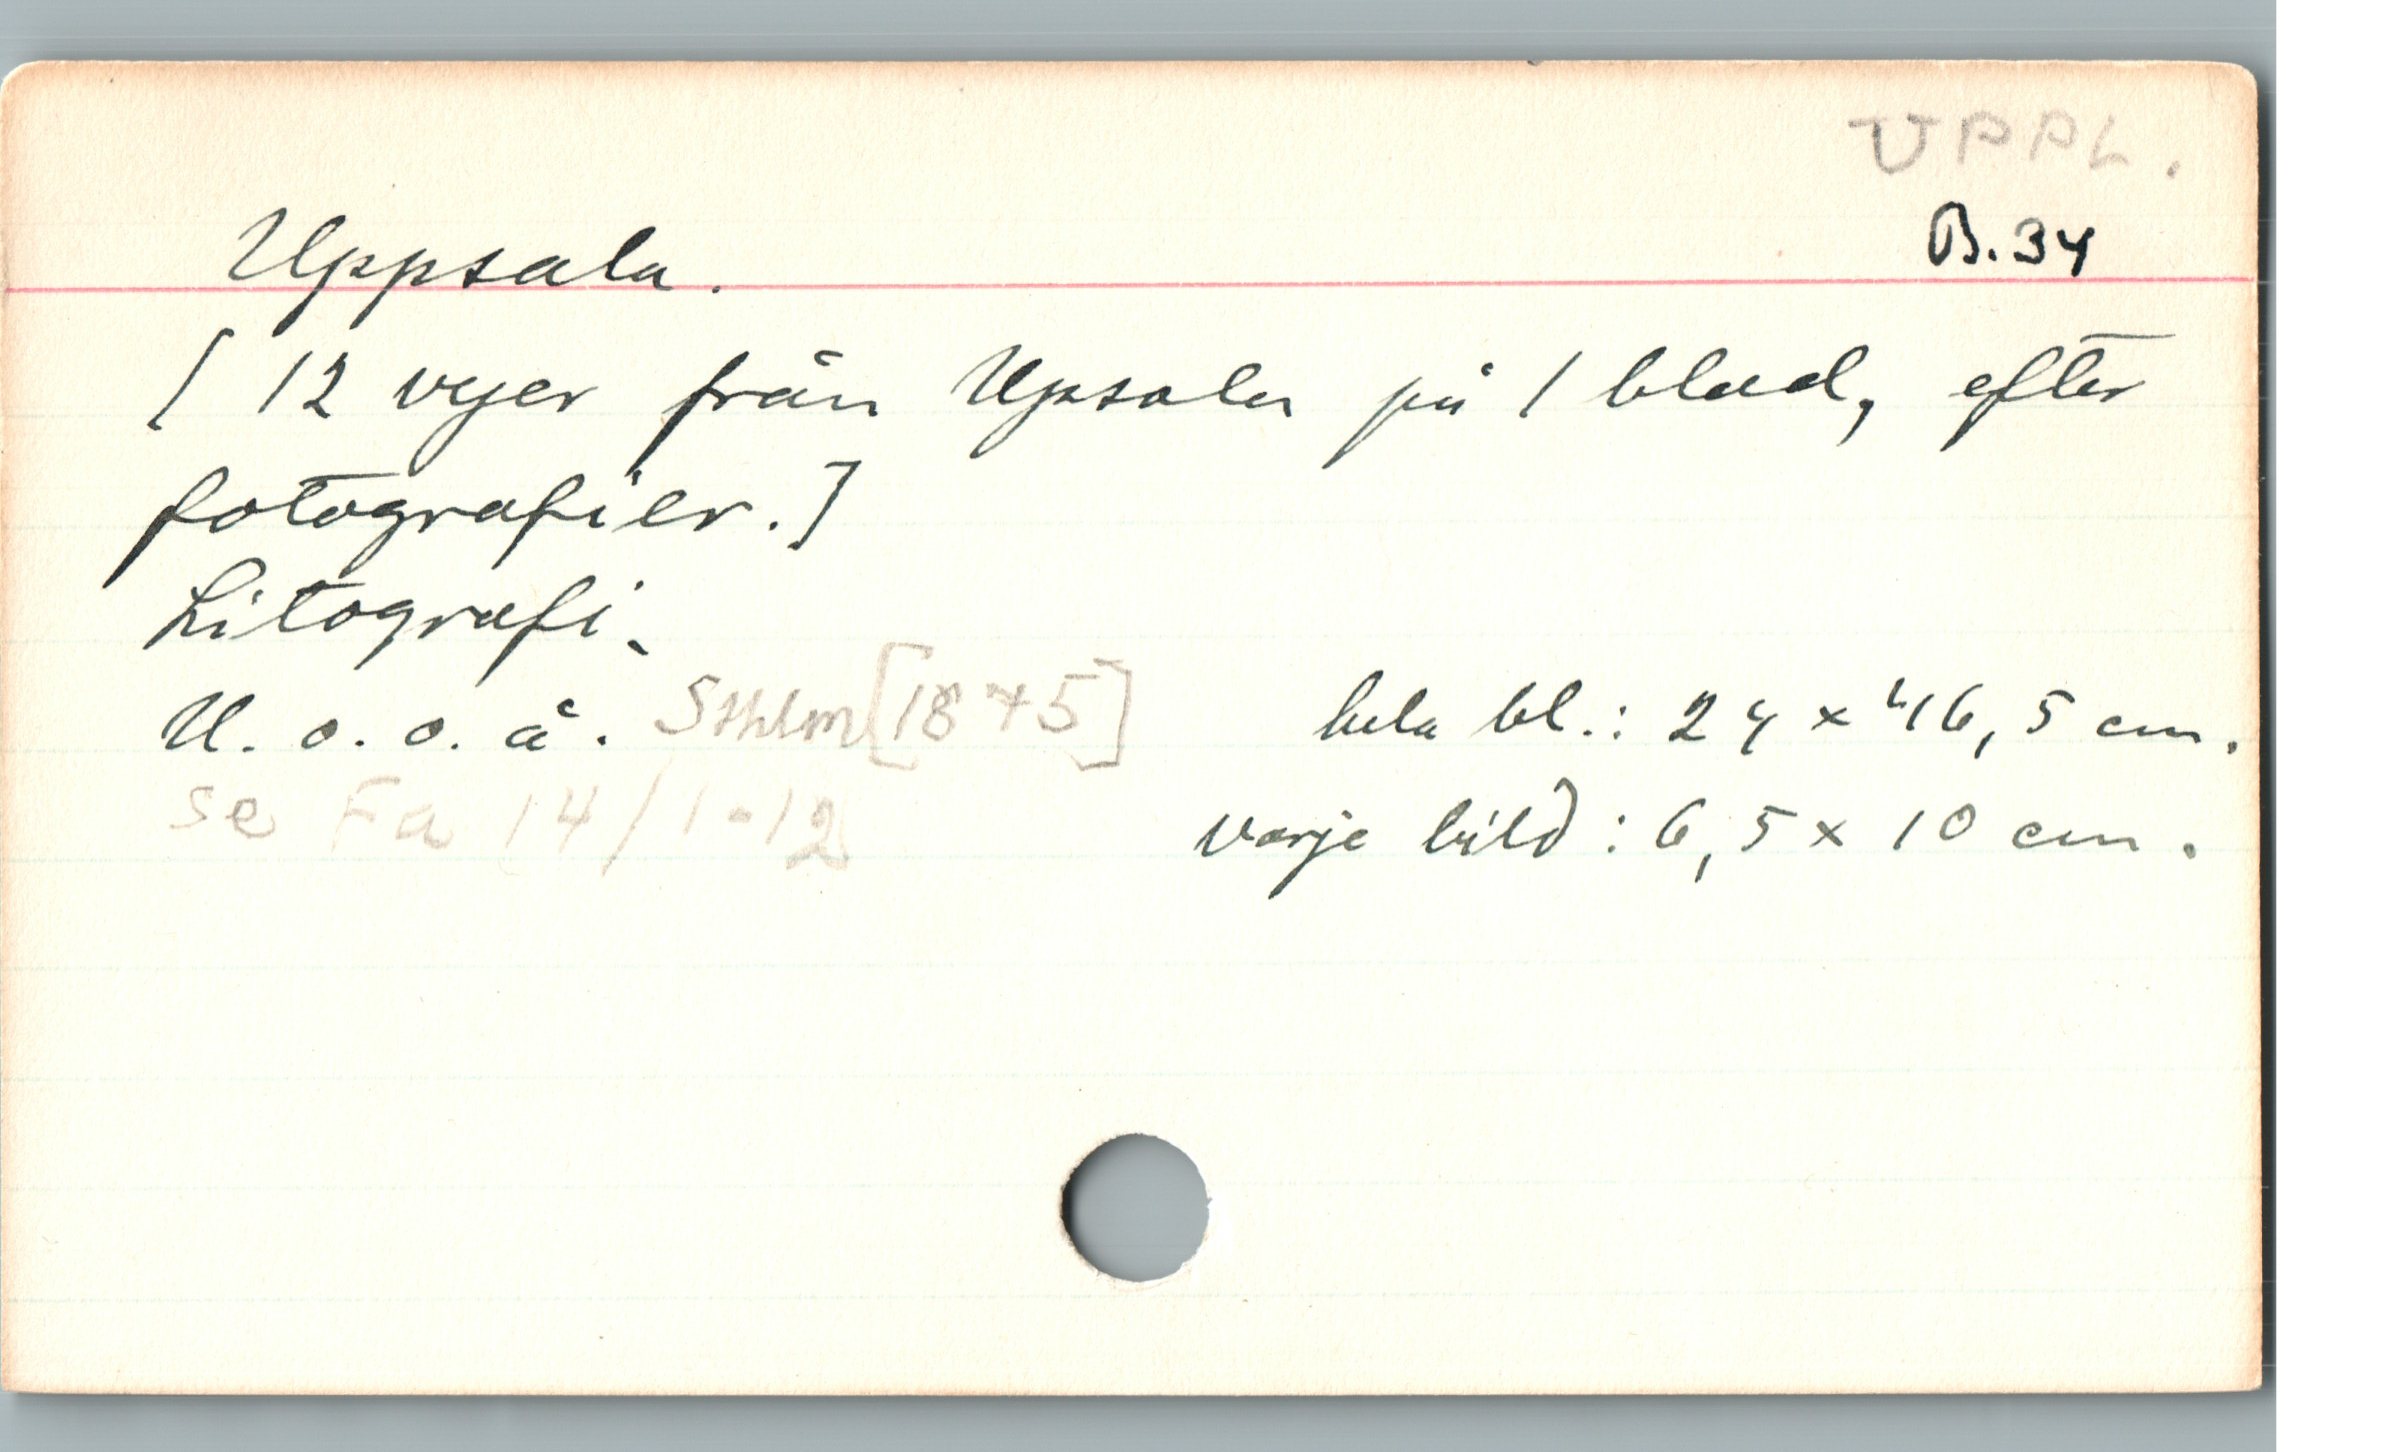 UPPL.
B. 34
Uppsala.
[ 12 vyer från Upsala på 1 blad, efter
fotografier.]
Litografi.
U. o. o. å. Sthlm [1875]
hela bl.: 24 x 46,5 cm.
se Fa 14/1-12
varje bild: 6,5 x 10 cm.